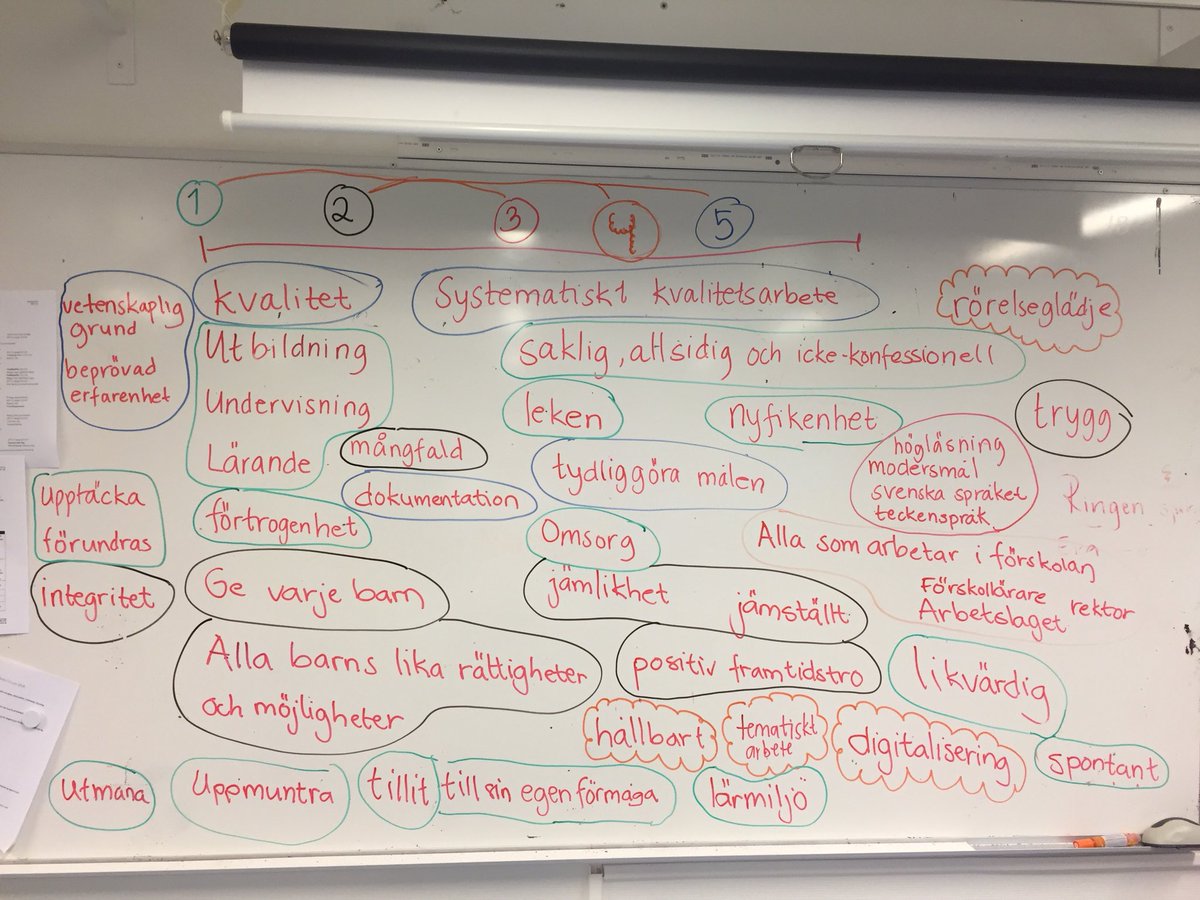 1
2
3
4
5
vetenskaplig
grund
beprövad
erfarenhet
kvalitet
Systematiskt kvalitetsarbete
rörelseglädje
Utbildning
Undervisning
Lärande
saklig, allsidig och icke-konfessionell
leken
nyfikenhet
trygg
mångfald
dokumentation
tydliggöra målen
högläsning
modersmål
svenska språket
teckenspråk
Ringen
Upptäcka
förundras
förtrogenhet
Omsorg
Alla som arbetar i förskolan
Förskollärare
rektor
Arbetslaget
integritet
Ge varje barn
jämlikhet
jämställt
Alla barns lika rättigheter
och möjligheter
positiv framtidstro
likvärdig
hållbart
tematiskt
arbete
digitalisering
spontant
Utmana
Uppmuntra
tillit till sin egen förmåga
lärmiljö